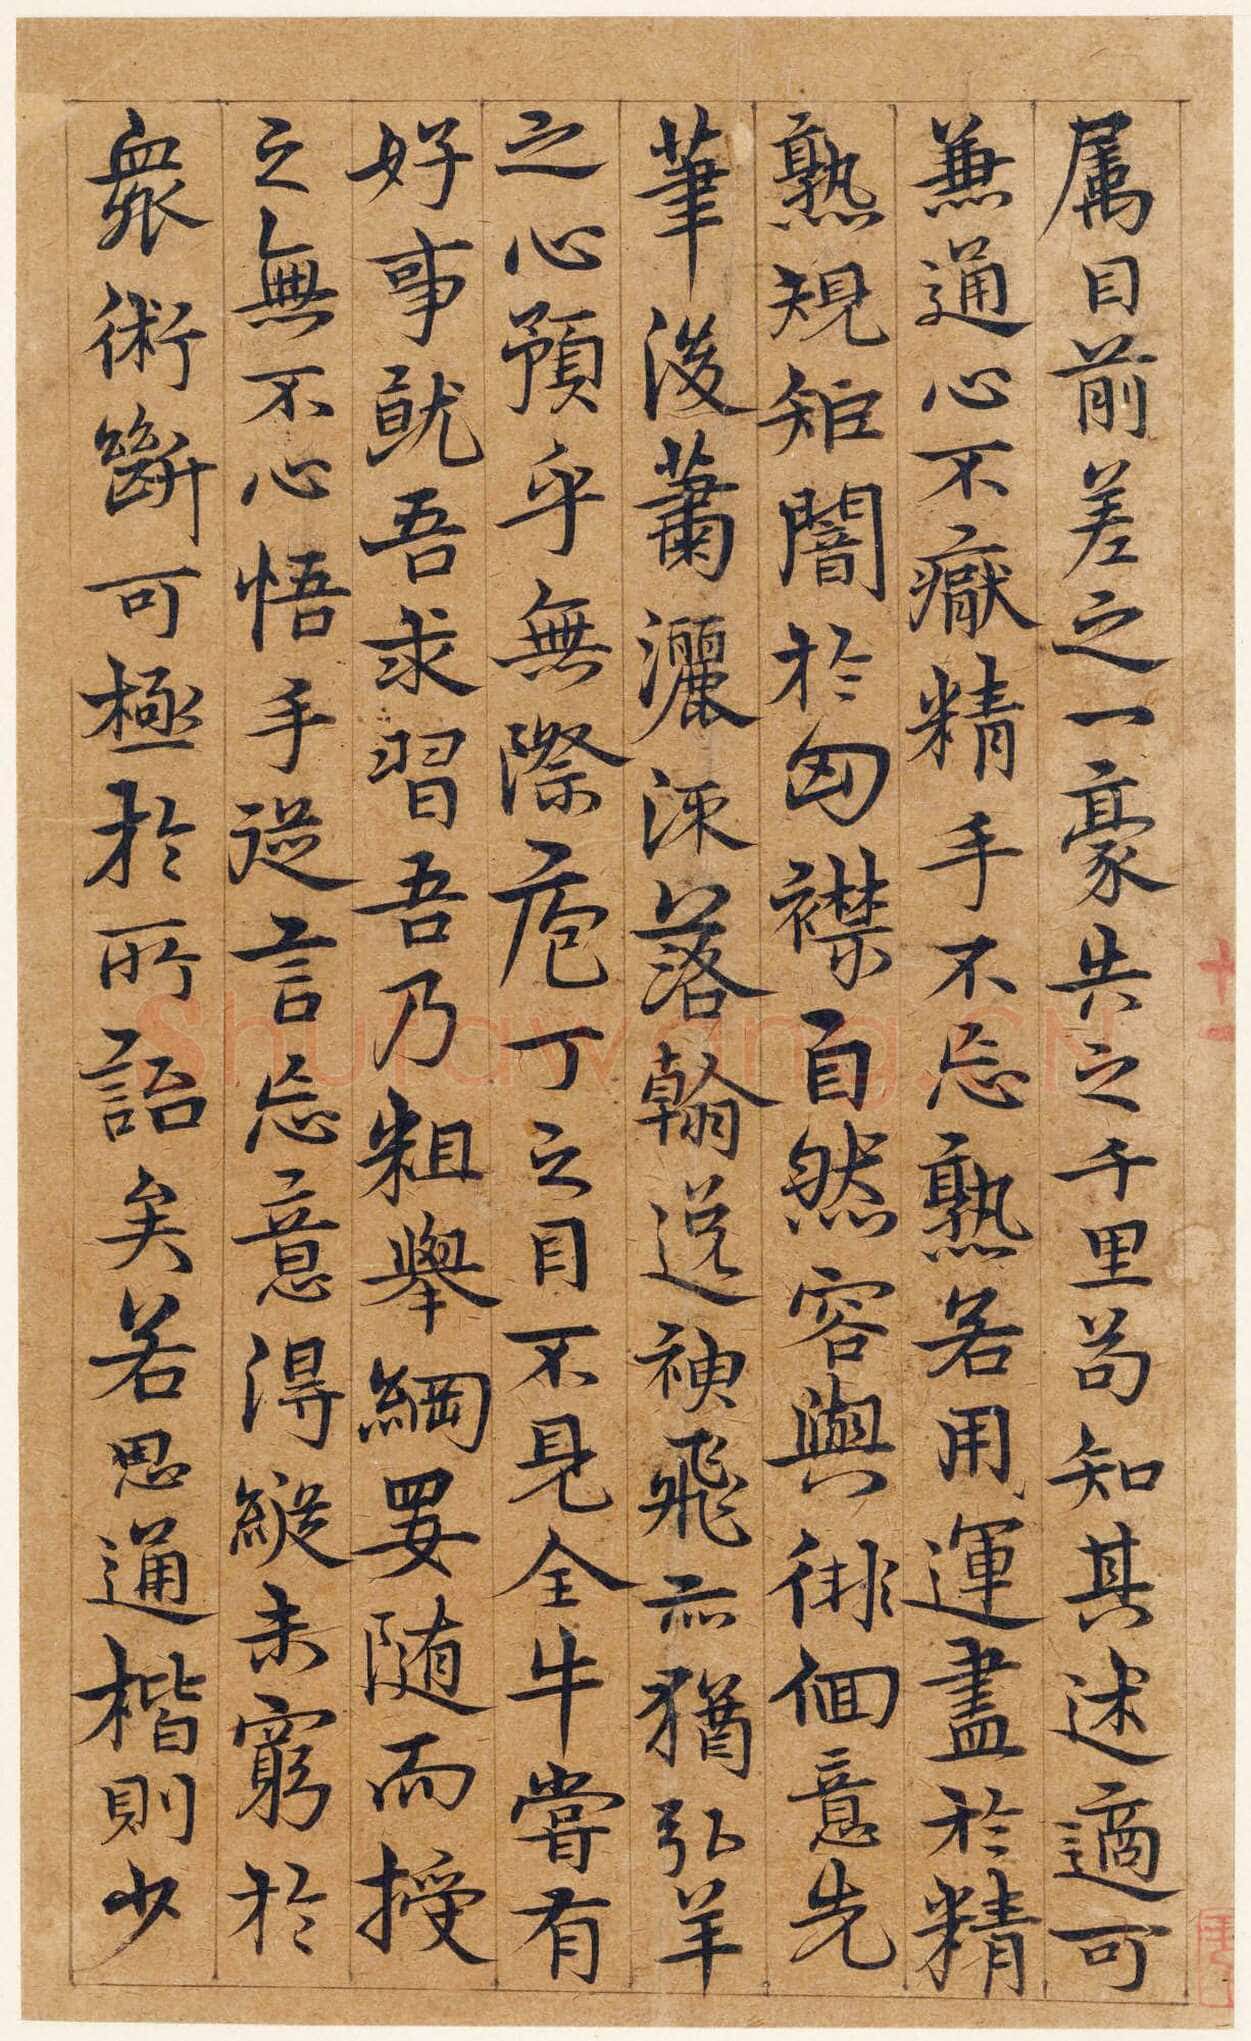 属目前差之一豪失之千里苟知其述適可
兼通心不厭精手不忘熟若用運盡於精
熟規矩闇於匈襟自然容與徘佪意先
筆後蕭灑流落翰逸神飛亦猶弘羊
之心預乎無際庖丁之目不見全牛嘗有
好事就吾求習吾乃粗舉綱要随而授
之無不心悟手從言忘意得縱未窮於
衆術斷可極於所詣矣若思通楷則少
十一
Shufawang.CN